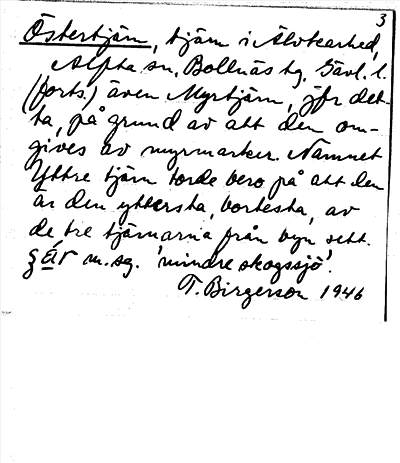 3
Östertjärn, tjärn i Älvkarhed,
Alfta sn, Bollnäs tg, Gävl. l.
(forts.) även Myrtjärn, jfr det-
ta, på grund av att den om-
gives av myrmarker. Namnet
Yttre tjärn torde bero på att den
är den yttersta, bortesta, av
de tre tjärnarna från byn sett.
m. sg. 'mindre skogssjö'.
T. Birgerson 1946